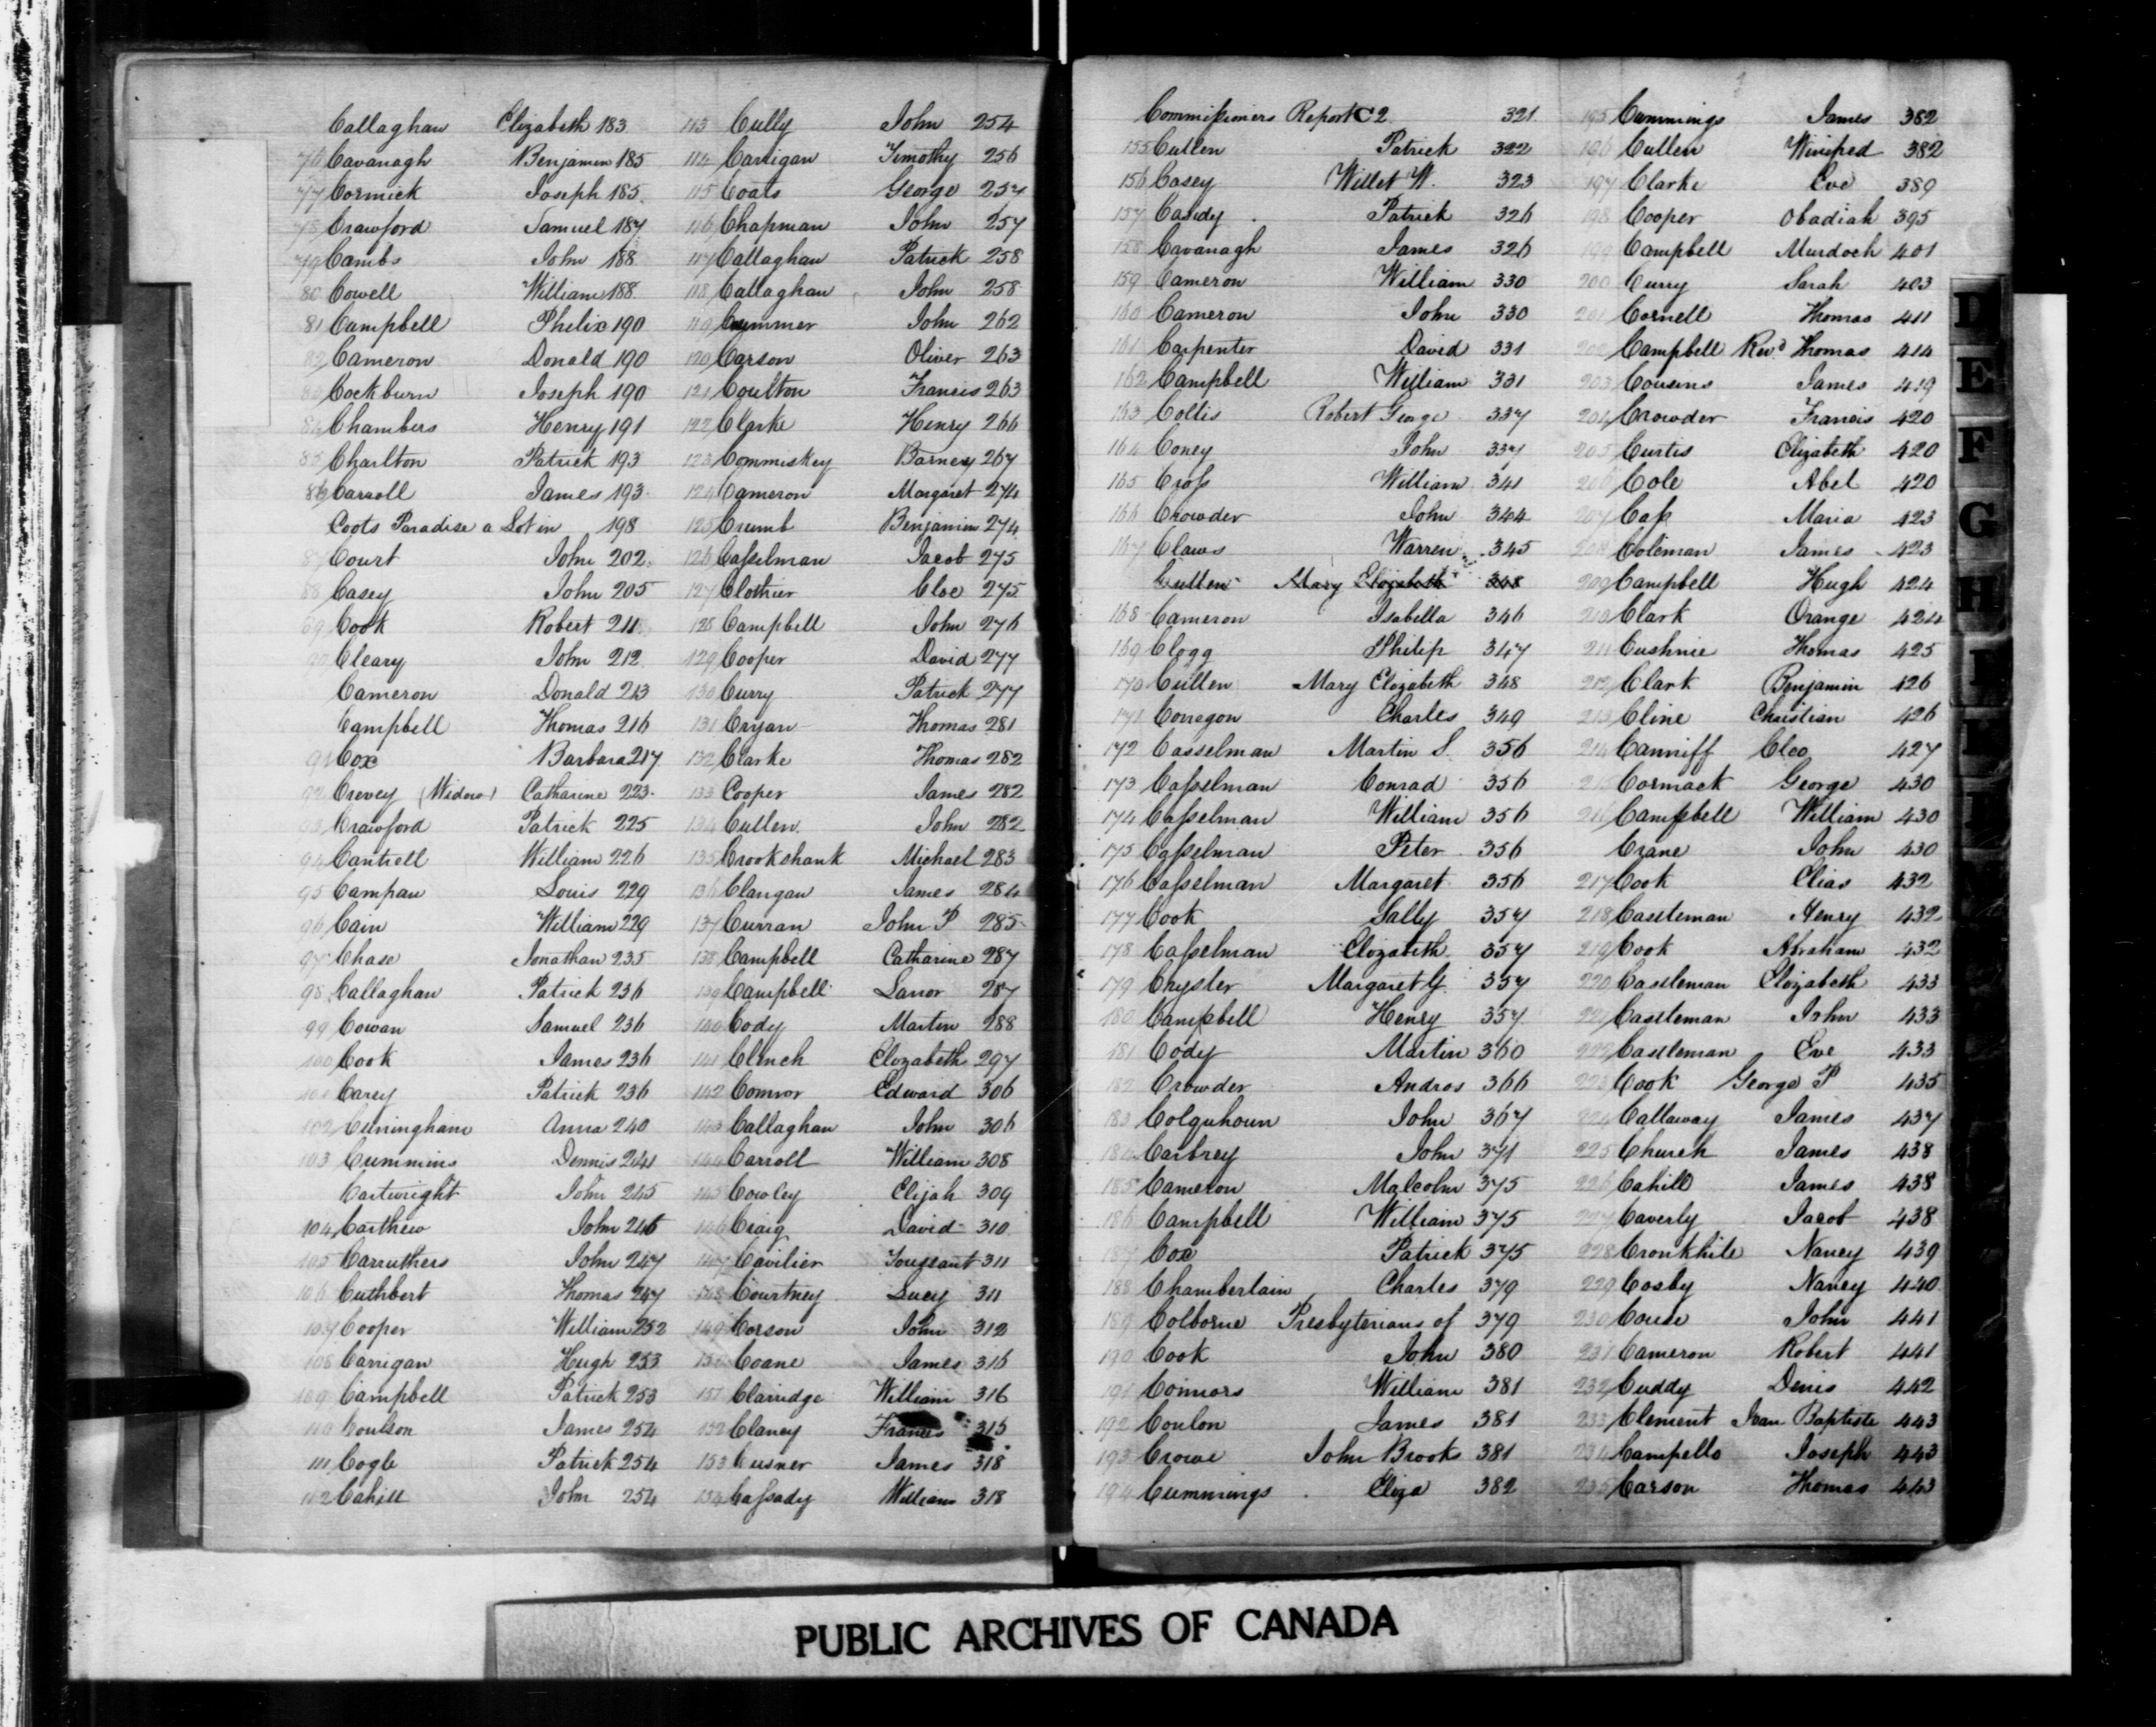 Callaghan Elizabeth 183
76 Cavanagh Benjamin 185
77 Cormick Joseph 185
78 Crawford Samuel 187
79 Cambs John 188
80 Cowell William 188
81 Campbell Phelix 190
82 Cameron Donald 190
83 Cockburn Joseph 190
84 Chambers Henry 191
85 Charlton Patrick 193
86 Carroll James 193
Coots Paradise a Lot in 198
87 Court John 202
88 Casey John 205
89 Cook Robert 211
90 Cleary John 212
Cameron Donald 213
Campbell Thomas 216
91 Cox Barbara 217
92 Crevey (Widow) Catharine 223
93 Crawford Patrick 225
94 Cantrell William 226
95 Campau Louis 229
96 Cain William 229
97 Chase Jonathan 235
98 Callaghan Patrick 236
99 Cowan Samuel 236
100 Cook James 236
101 Carey Patrick 236
102 Cuningham Anna 240
103 Cummins Dennis 241
Cartwright John 245
104 Carthew John 246
105 Carruthers John 247
106 Cuthbert Thomas 247
107 Cooper William 252
108 Carrigan Hugh 253
109 Campbell Patrick 253
110 Coulson James 254
111 Cogle Patrick 254
112 Cahill John 254
113 Cully John 254
114 Carrigan Timothy 256
115 Coats George 257
116 Chapman John 257
117 Callaghan Patrick 258
118 Callaghan John 258
119 Cummer John 262
120 Carson Oliver 263
121 Coulton Francis 263
122 Clarke Henry 266
123 Commiskey Barney 267
124 Cameron Margaret 274
125 Crumb Benjamin 274
126 Casselman Jacob 275
127 Clothier Cloe 275
128 Campbell John 276
129 Cooper David 277
130 Curry Patrick 277
131 Cryan Thomas 281
132 Clarke Thomas 282
133 Cooper James 282
134 Cullen John 282
135 Crookshank Michael 283
136 Clangan James 284
137 Curran John P 285
138 Campbell Catharine 287
139 Campbell Lanor 287
140 Cody Martin 288
141 Clench Elizabeth 297
142 Connor Edward 306
143 Callaghan John 306
144 Carroll William 308
145 Cowley Elijah 309
146 Craig David 310
147 Cavilier Toussant 311
148 Courtney Lucy 311
149 Corson John 312
150 Coane James 316
151 Clarridge William 316
152 Clancy Frances 316
153 Cusner James 318
154 Cassady William 318
Commissioners Report C 2 321
155 Cullen Patrick 322
156 Casey Willet W. 323
157 Candy Patrick 326
158 Cavanagh James 326
159 Cameron William 330
160 Cameron John 330
161 Carpenter David 331
162 Campbell William 331
163 Collis Robert George 337
164 Coney John 337
165 Cross William 341
166 Crowder John 344
167 Claws Warren 345
Cullen Mary Elizabeth 348
168 Cameron Isabella 346
169 Clogg Philip 347
170 Cullen Mary Elizabeth 348
171 Conegon Charles 349
172 Casselman Martin S. 356
173 Casselman Conrad 356
174 Casselman William 356
175 Casselman Peter 356
176 Casselman Margaret 356
177 Cook Sally 357
178 Casselman Elizabeth 357
179 Chryster Margaret G. 357
180 Campbell Henry 357
181 Cody Martin 360
182 Crowder Andros 366
183 Colquhoun John 367
184 Carbrey John 371
185 Cameron Malcolm 375
186 Campbell William 375
187 Cox Patrick 375
188 Chamberlain Charles 379
189 Colborne Presbyterians of 379
190 Cook John 380
191 Connors William 381
192 Coulon James 381
193 Crowe John Brook 381
194 Cummings Eliza 382
195 Cummings James 382
196 Cullen Winifred 382
197 Clarke Eve 389
198 Cooper Obadiah 395
199 Campbell Murdoch 401
200 Curry Sarah 403
201 Cornell Thomas 411
202 Campbell Revd Thomas 414
203 Cousens James 419
204 Crowder Francis 420
205 Curtis Elizabeth 420
206 Cole Abel 420
207 Cass Maria 423
208 Coleman James 423
209 Campbell Hugh 424
210 Clark Orange 424
211 Cushnie Thomas 425
212 Clark Benjamin 426
213 Cline Christian 426
214 Canniff Cleo 427
215 Cormack George 430
216 Campbell William 430
Crane John 430
217 Cook Elias 432
218 Castleman Henry 432
219 Cook Abraham 432
220 Castleman Elizabeth 433
221 Castleman John 433
222 Castleman Eve 433
223 Cook George P 435
224 Callaway James 437
225 Church James 438
226 Cahill James 438
227 Caverly Jacob 438
228 Cronkhite Nancy 439
229 Cosby Nancy 440
230 Couse John 441
231 Cameron Robert 441
232 Cuddy Denis 442
233 Clement Jean Baptiste 443
234 Campello Joseph 443
235 Carson Thomas 443
D
E
F
G
H
I
PUBLIC ARCHIVES OF CANADA